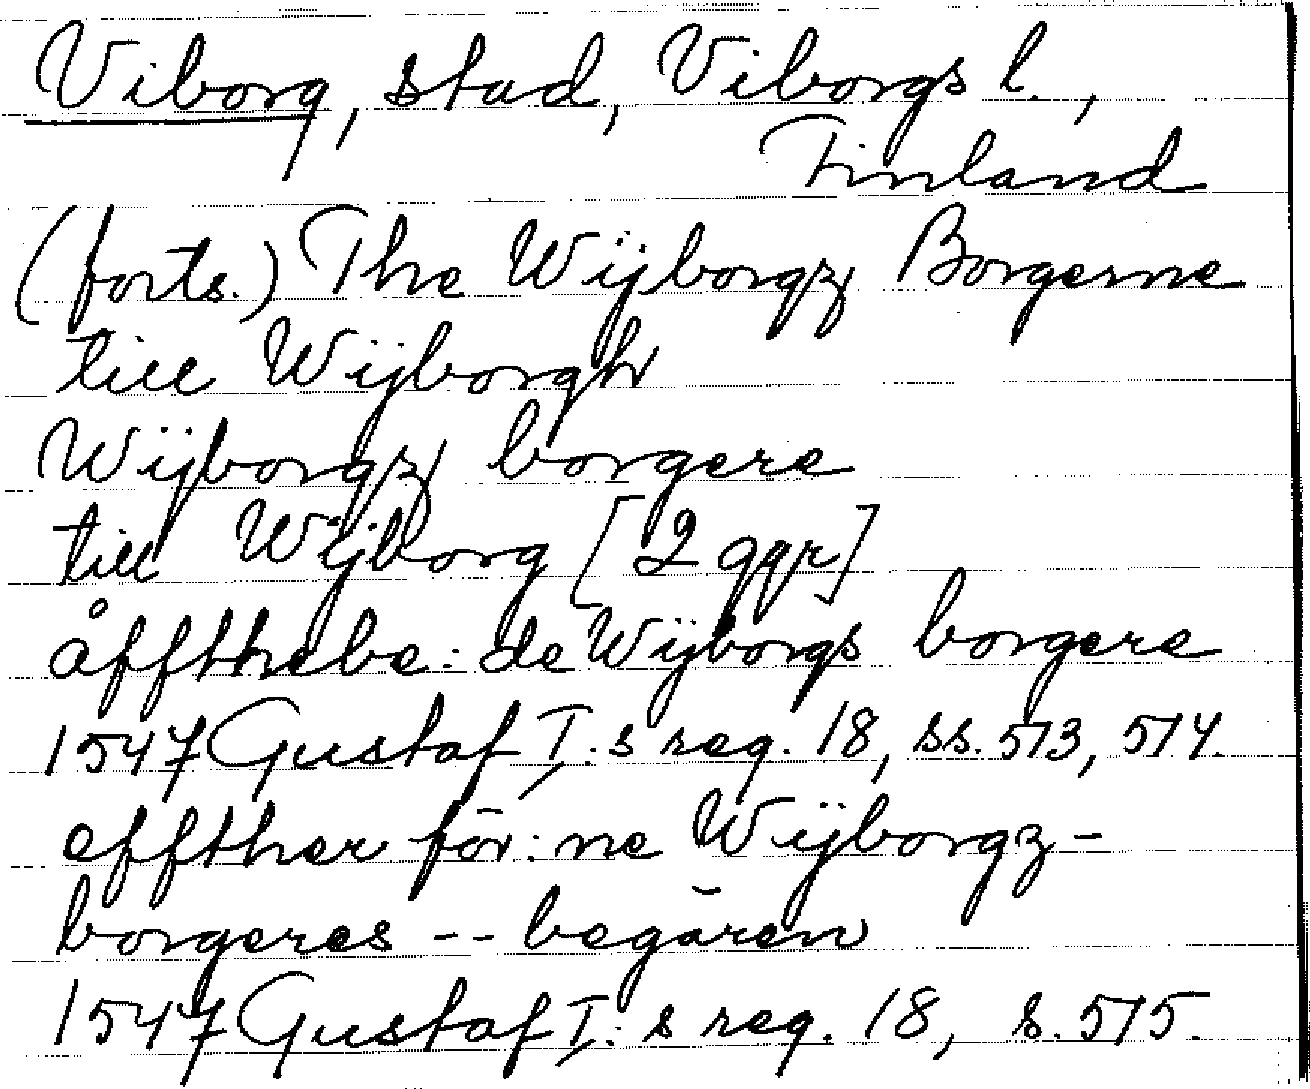 Viborg, stad, Viborgs l.,
Finland
(forts.) The Wijborgz Borgerne
till Wijborgh
Wijborgz borgere
till Wijborg [2 ggr]
åffthebe: de Wijborgs borgere
1547 Gustaf I:s reg. 18, ss. 513, 514.
effther för:ne Wijborgz-
borgeres -- begären
1547 Gustaf I:s reg. 18, s. 515.